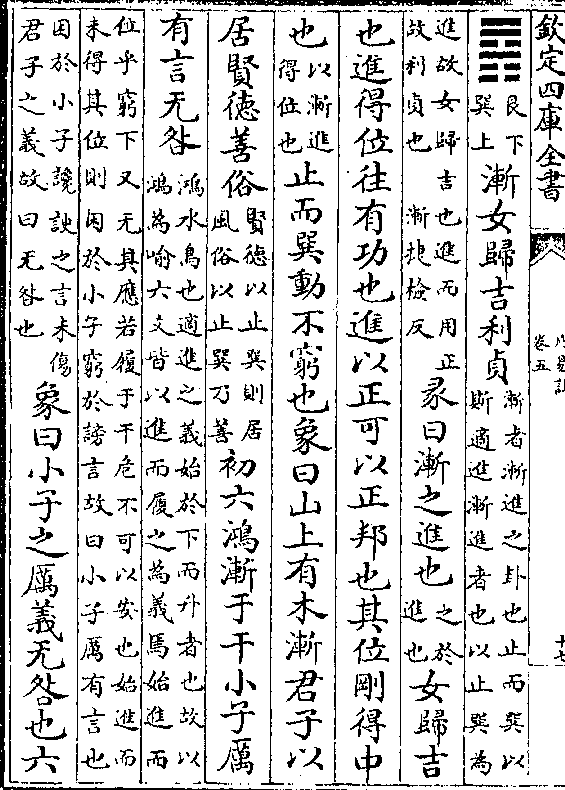 欽定四庫全書
卷五
艮下巽上漸女歸吉利貞漸者漸進之卦也止而巽以斯適進漸進者也以止巽為
進故女歸吉也進而用正故利貞也漸捷檢反彖曰漸之進也之於進也女歸吉
也進得位往有功也進以正可以正邦也其位剛得中
也以漸進得位也止而巽動不窮也象曰山上有木漸君子以
居賢德善俗賢德以止巽則居風俗以止巽乃善初六鴻漸于干小子厲
有言无咎鴻水鳥也適進之義始於下而升者也故以鴻為喻六爻皆以進而履之為義焉始進而
位乎窮下又无其應若履于干危不可以安也始進而未得其位則困於小子窮於謗言故曰小子厲有言也
困於小子讒諛之言未傷君子之義故曰无咎也象曰小子之厲義无咎也六